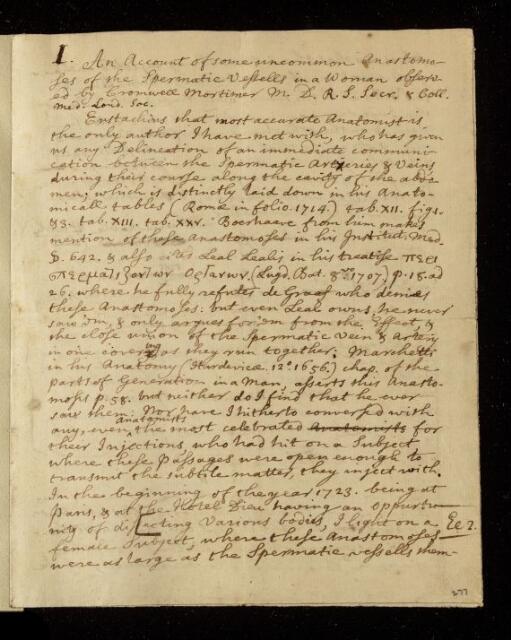 I. An Account of some uncommon Anastomo-
ses of the Spermatic Vessells in a Woman observ-
ed by Cromwell Mortimer M. D. R. S. Secr. & Coll.
Med. Lond. Soc.
Eustachius that most accurate Anatomist is
the only author I have met with, who has given
us any Delineation of an immediate communi-
cation between the Spermatic Arteries & Veins
during their course along the cavity of the abdo-
men, which is distinctly laid down in his Anato-
micall tables (Rome in folio. 1714.) tab. XII. fig. 1.
& 3. tab. XIII. tab. XXV. Boerhaave from him makes
mention of these Anastomoses in his Institut. Med.
§. 642. & also cites Leal Lealis in his treatise περι
σπερματιζοντων Οργανων. (Lugd. Bat. 8vo 1707) p. 18. ad
26. where he fully refutes de Graaf who denies
these Anastomoses: but even Leal owns, he never
saw 'em, & only argues for 'em from the Effect, &
the close union of the Spermatic Vein & Artery
in one covering as they run together. Marchetti
in his Anatomy (Hardevic. 12o. 1656.) chap. of the
parts of Generation in a Man, asserts this Anasto-
mosis p. 58. but neither do I find that he ever
saw them: Nor have I hitherto conversed with
any, even the most celebrated Anatomists for
Anatomists
their Injections, who had hit on a Subject
where these Passages were open enough to
transmit the subtile matter, they inject with.
In the beginning of the year 1723. being at
Paris, & at the Hotel Dieu having an oppurtu-
nity of dissecting various bodies, I light on a
Ee 2.
female Subject, where these Anastomoses
were as large as the Spermatic vessells them-
277